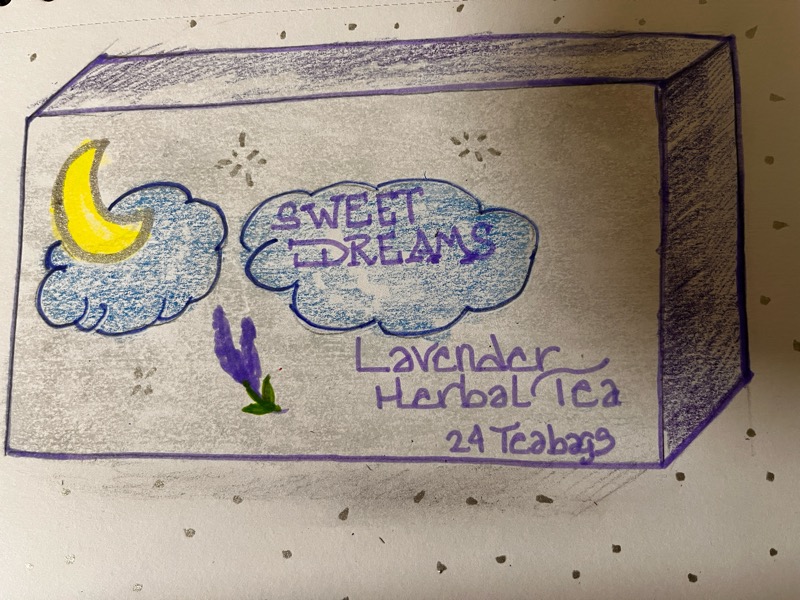 SWEET
DREAMS
Lavender
Herbal Tea
24 Teabags